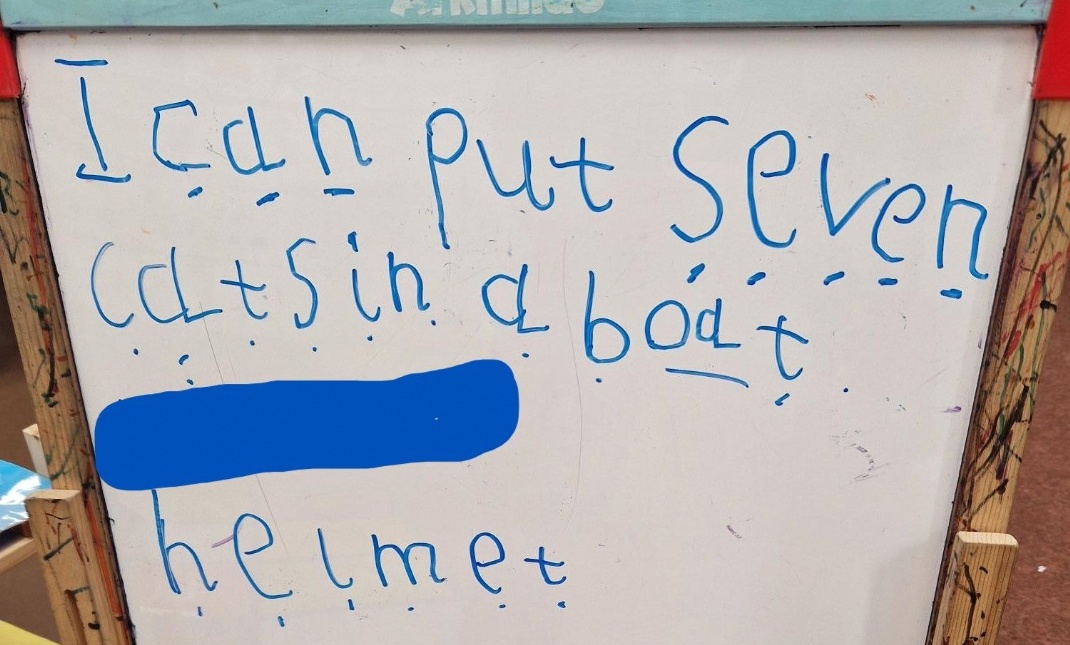 I can put seven
cats in a boat.
helmet